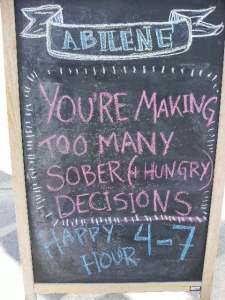 ABILENE
YOU'RE MAKING
TOO MANY
SOBER (& HUNGRY)
DECISIONS
HAPPY
HOUR 4-7